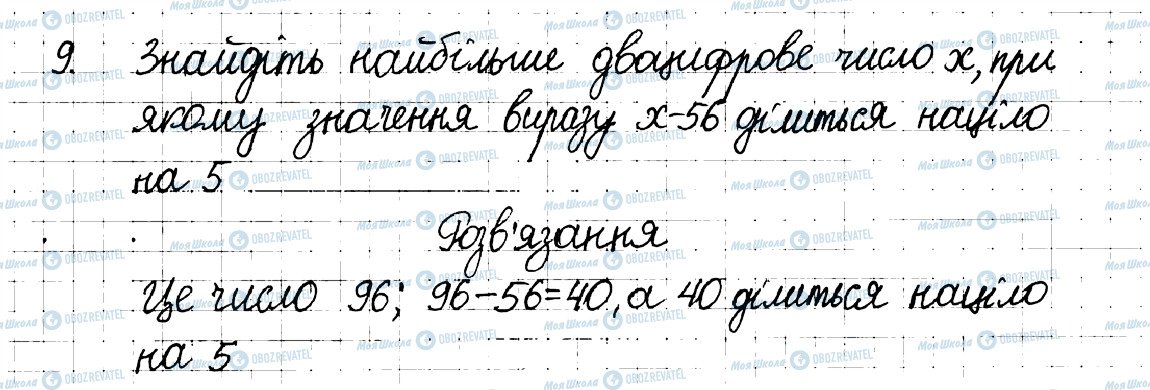 9. Знайдіть найбільше двоцифрове число x, при
якому значення виразу x-56 ділиться націло
на 5
Розв'язання
Це число 96; 96-56=40, а 40 ділиться націло
на 5